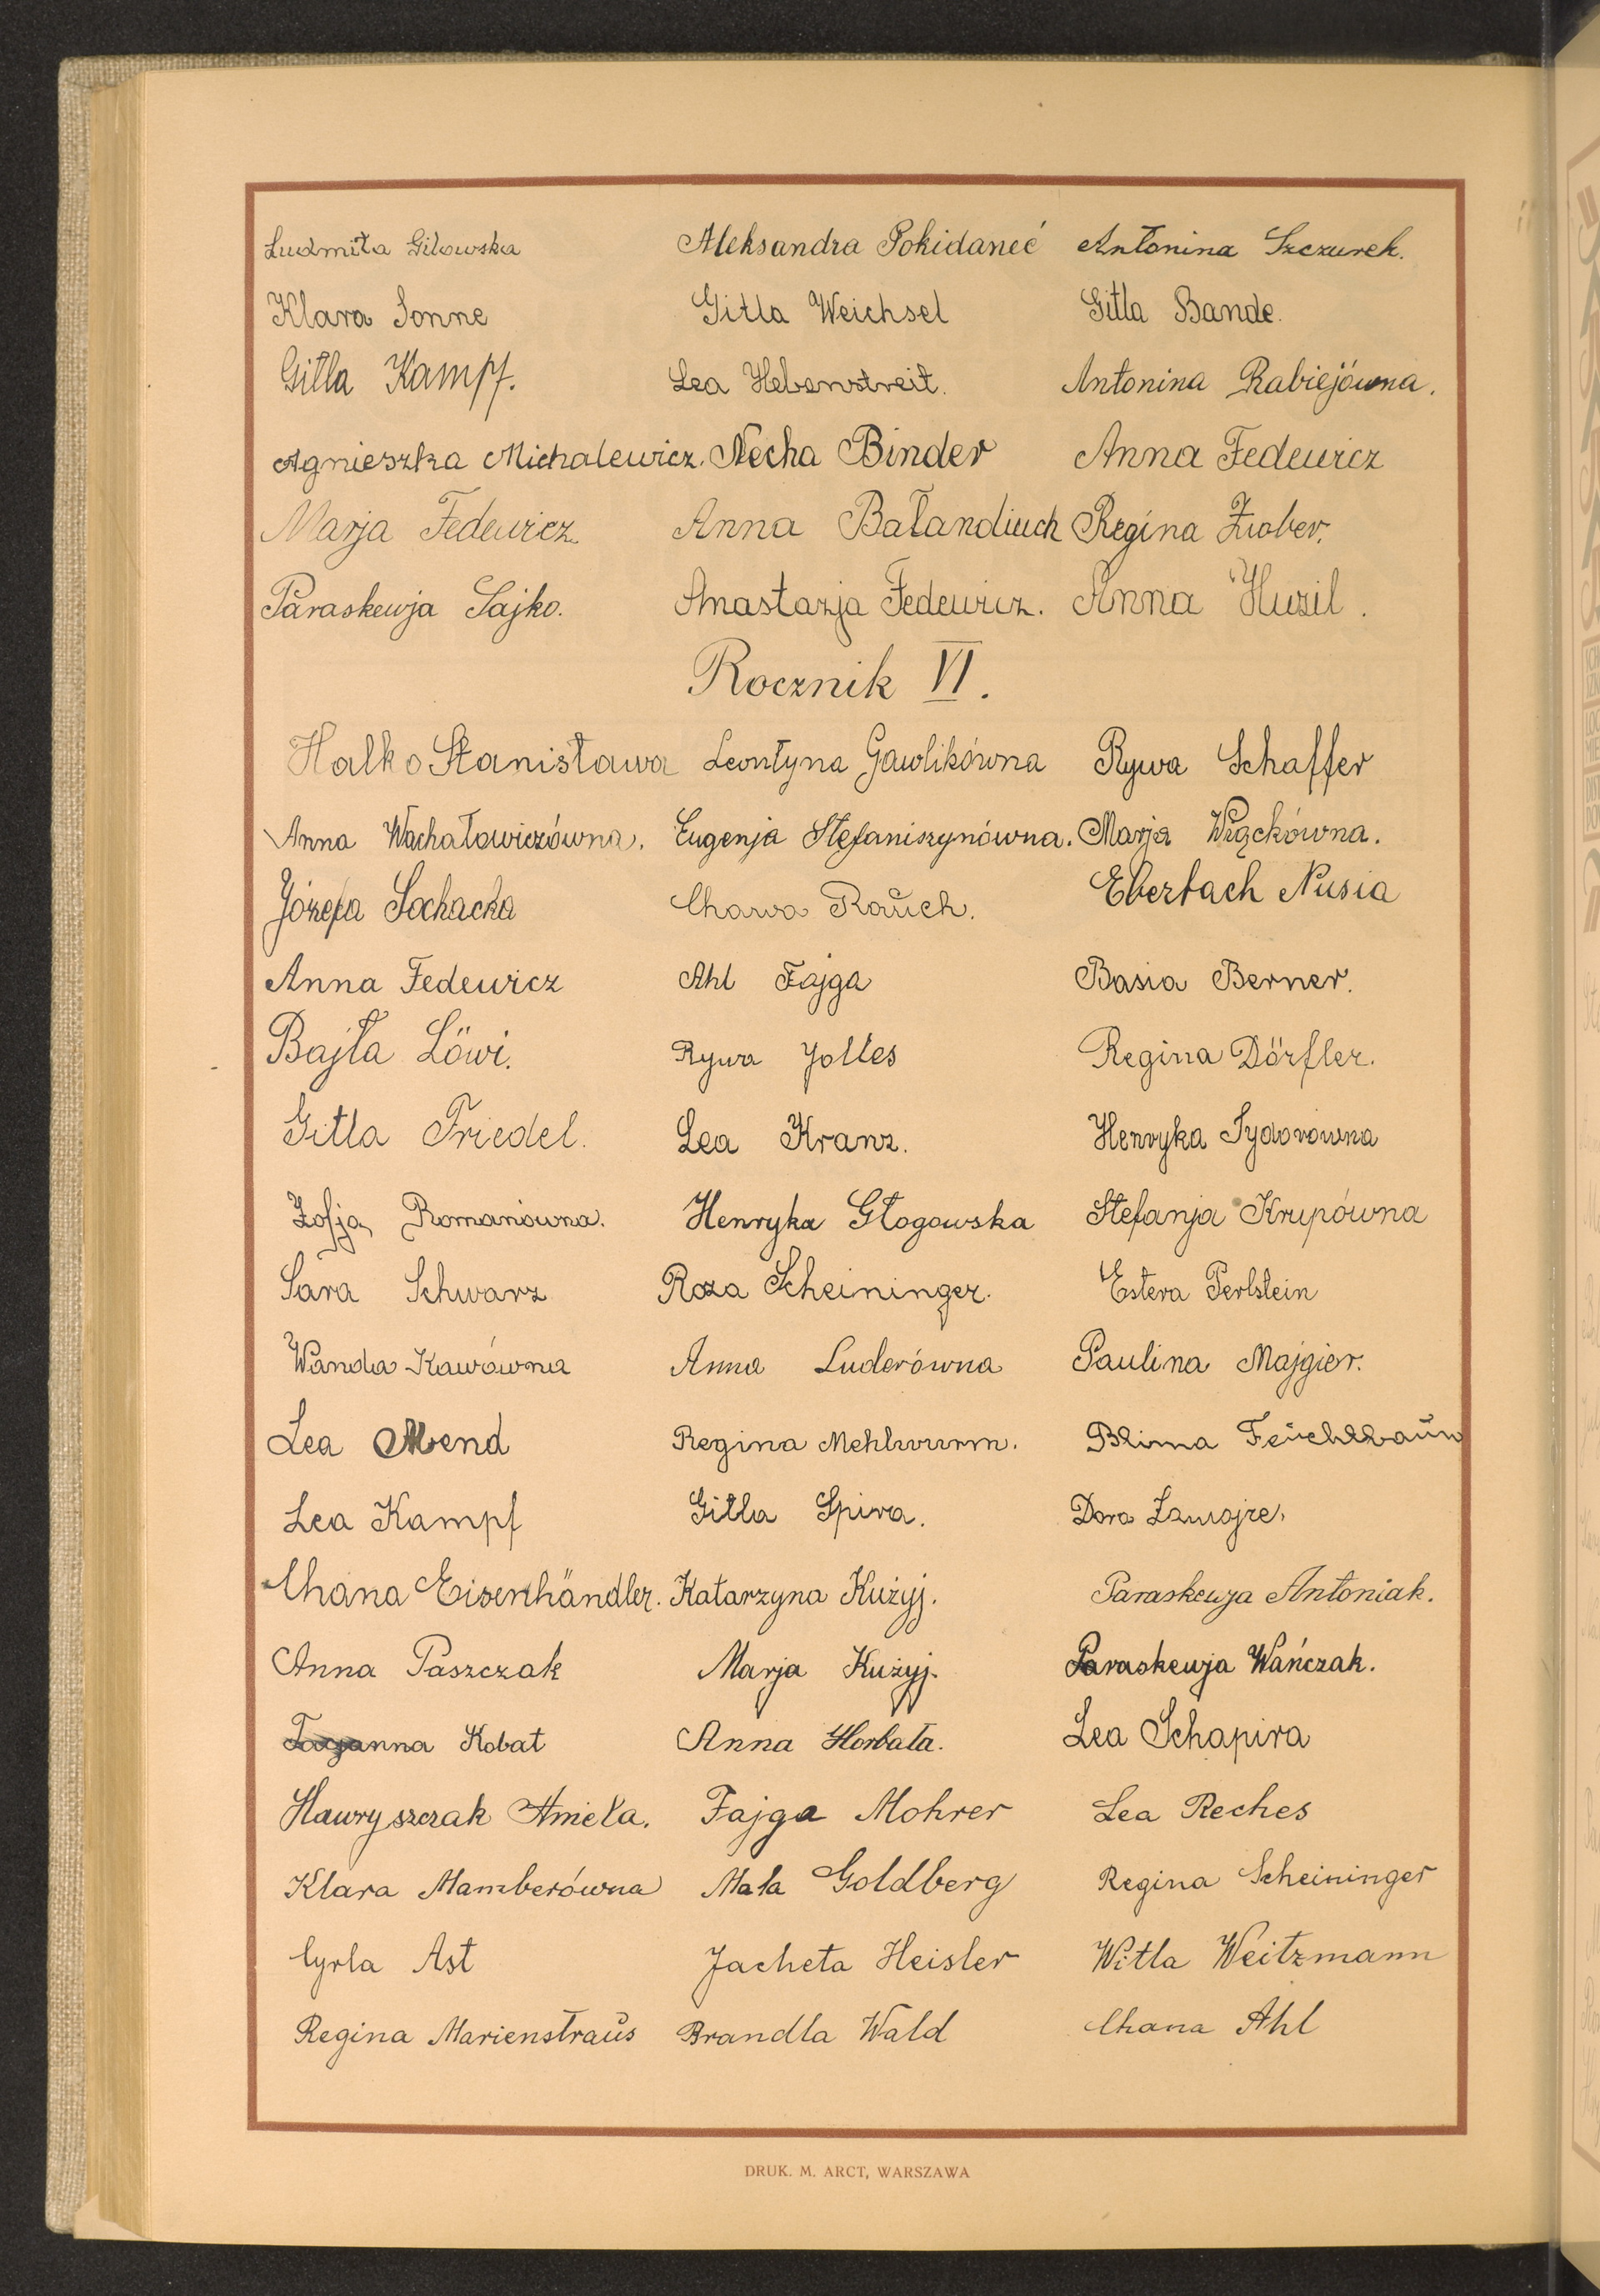 Ludmiła Gilowska Aleksandra Pokidaneć Antonina Szczurek.
Klara Sonne Gitla Weichsel Gitla Bande.
Gitla Kampf. Lea Hebenstreit. Antonina Rabiejówna.
Agnieszka Michalewicz. Necha Binder Anna Fedewicz
Marja Fedewicz. Anna Bałandiuch Regina Zwober.
Paraskewja Sajko. Anastazja Fedewicz. Anna Huzil.
Rocznik VI.
Halko Stanisława Leontyna Gawlikówna Rywa Schaffer
Anna Wachałowiczówna. Eugenja Stefaniszynówna. Marja Wiąckówna.
Józefa Sochacka Chawa Rauch. Eberbach Nusia
Anna Fedewicz Ahl Fajga Basia Berner.
Bajla Löwi. Rywa Jolles Regina Dörfler.
Gitla Friedel. Lea Kranz. Henryka Sydorówna
Zofja Romanówna. Henryka Głogowska Stefanja Krupówna
Sara Schwarz Roza Scheininger. Estera Perlstein
Wanda Kawówna Anna Luderówna Paulina Majgier.
Lea Mend Regina Mehlwurm. Blima Feuchtbaum
Lea Kampf Gitla Spira. Dora
Chana Eisenhändler. Katarzyna Kużyj. Paraskewja Antoniak.
Anna Paszczak Marja Kużyj. Paraskewja Wańczak.
anna Kobat Anna Horbata. Lea Schapira
Hawryszczak Aniela. Fajga Mohrer Lea Reches
Klara Mamberówna Mala Goldberg Regina Scheininger
Cyrla Ast Jacheta Heisler Witla Weitzmann
Regina Marienstraus Brandla Wald Chana Ahl
DRUK. M. ARCT, WARSZAWA